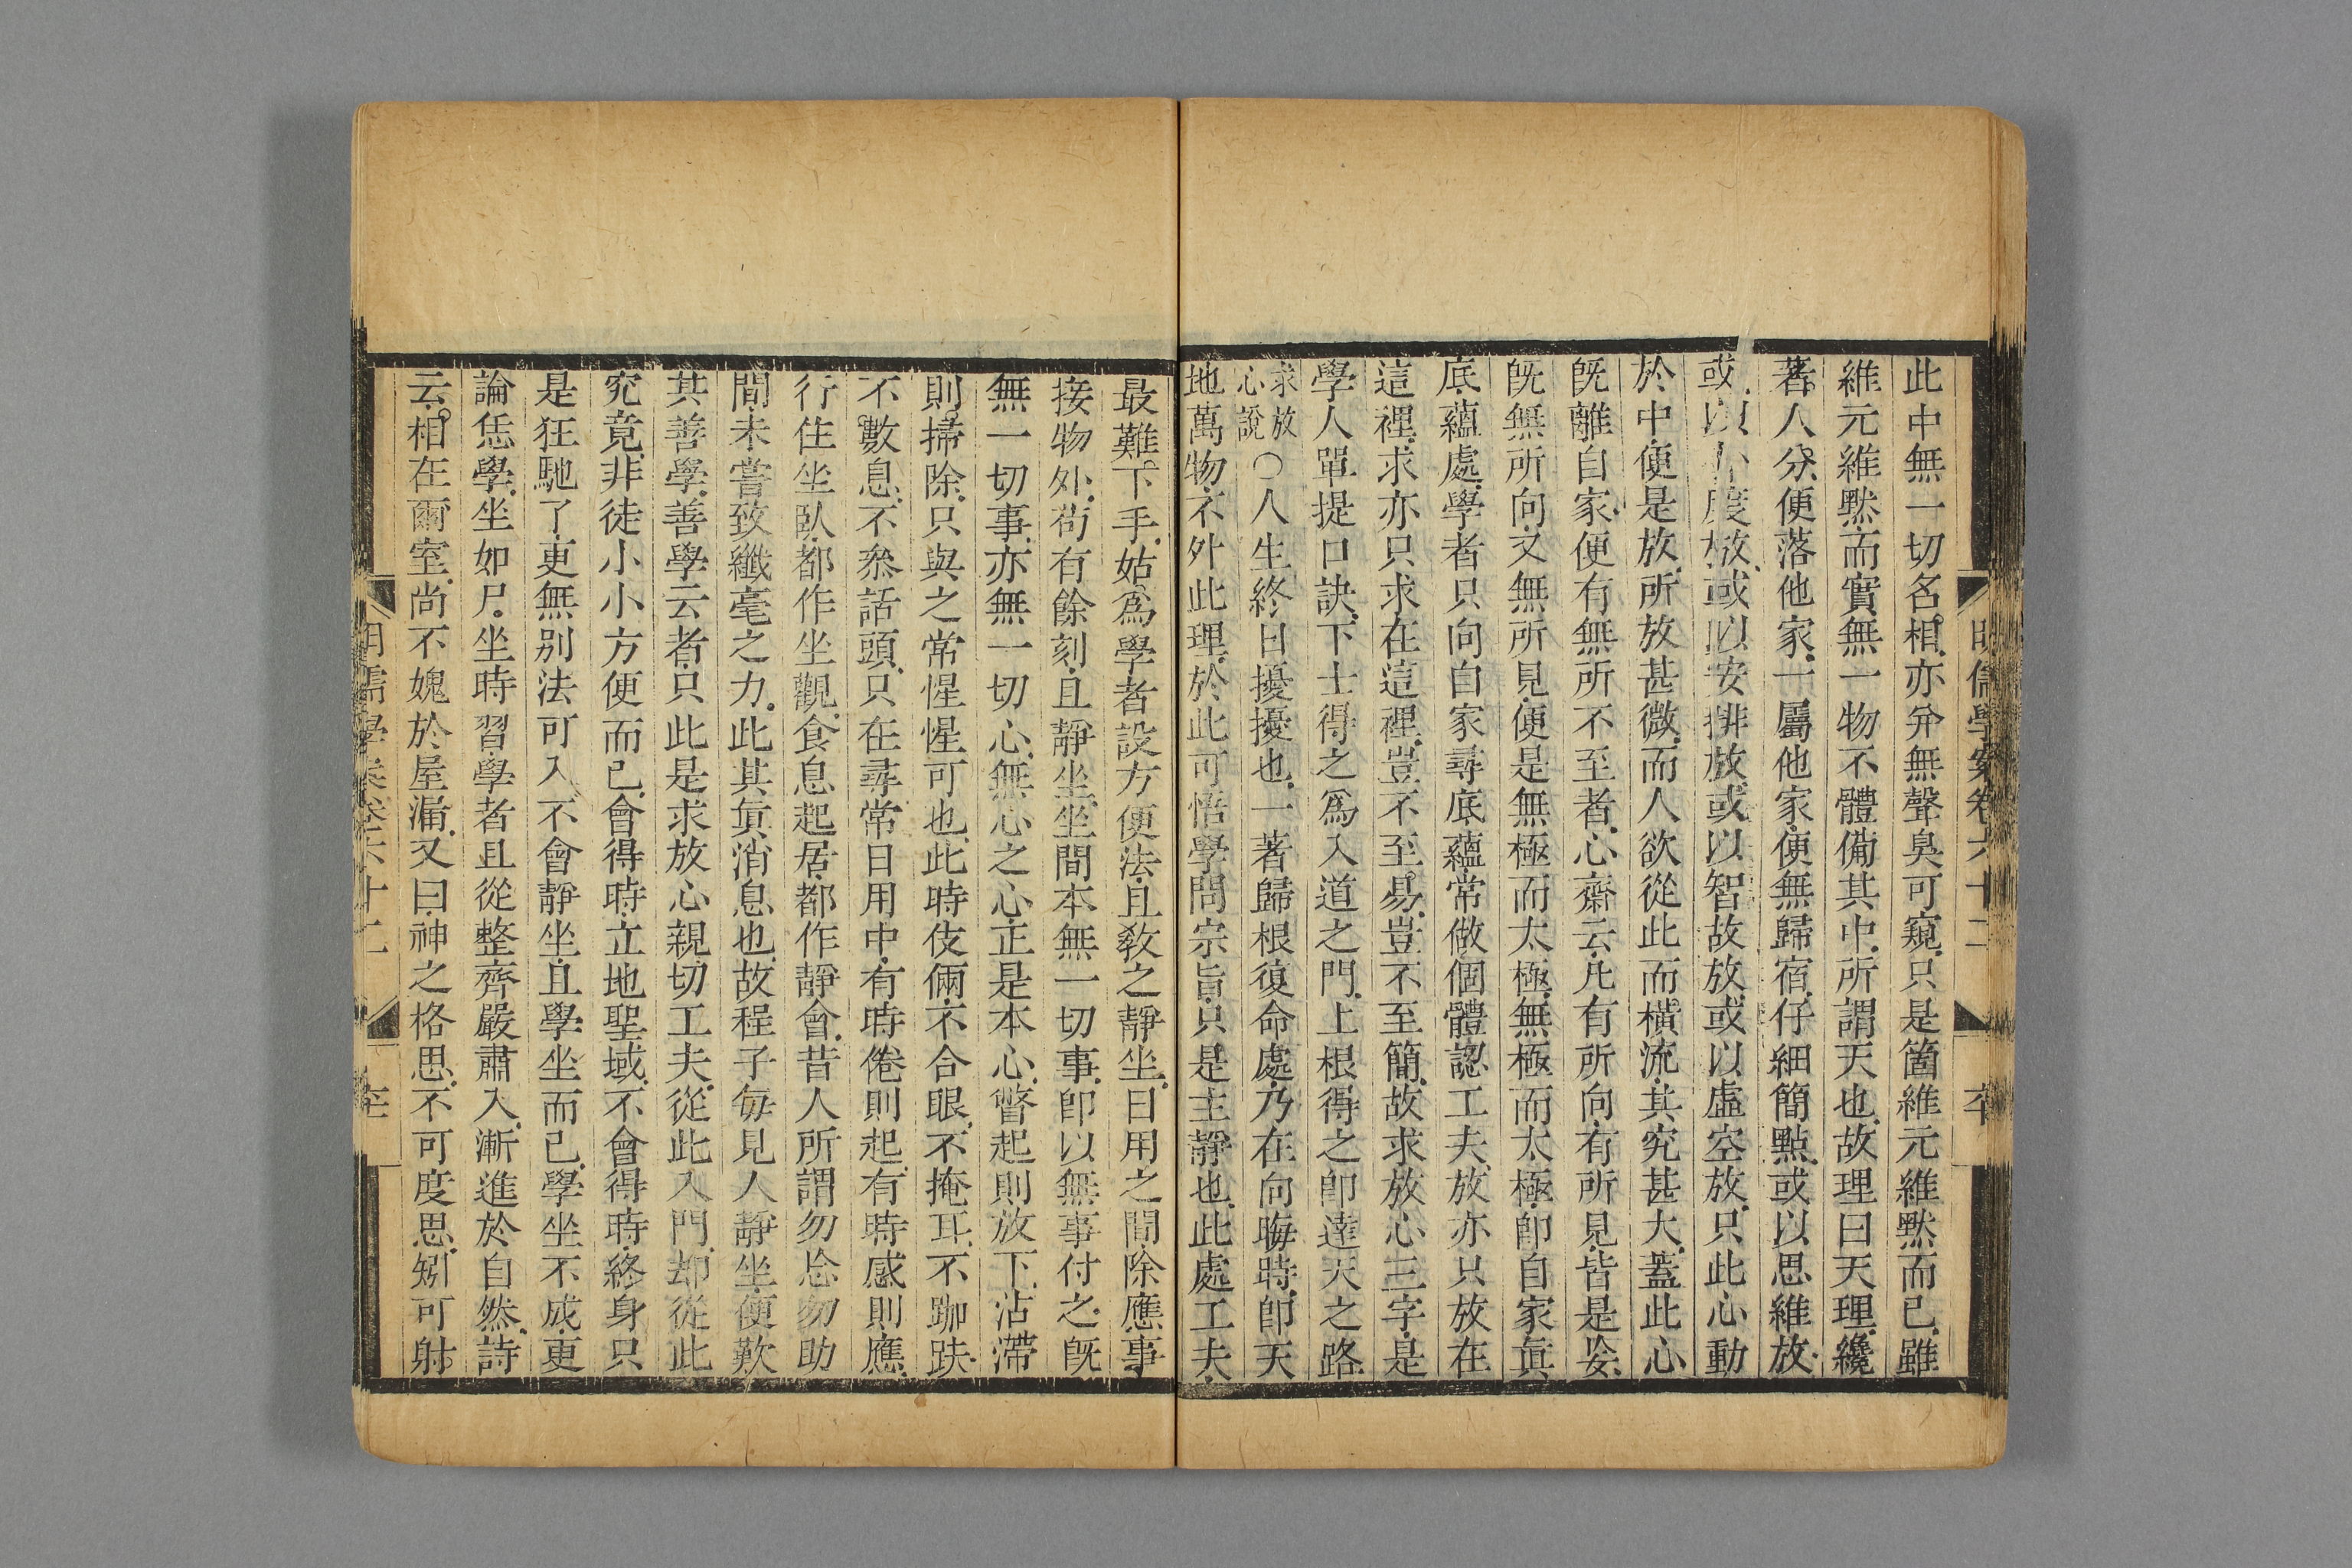 此中無一切名相亦幷無聲臭可窺只是箇維元維默而已雖
維元維默而實無一物不體備其中所謂天也故理曰天理纔
著人分便落他家一屬他家便無歸宿仔細簡點或以思維放
或以卜度放或以安排放或以智故放或以虛空放只此心動
於中便是放所放甚微而人欲從此而橫流其究甚大蓋此心
旣離自家便有無所不至者心齋云凡有所向有所見皆是妄
旣無所向又無所見便是無極而太極無極而太極卽自家眞
底蘊處學者只向自家尋底蘊常做個體認工夫放亦只放在
這裡求亦只求在這裡豈不至易豈不至簡故求放心三字是
學人單提口訣下士得之爲入道之門上根得之卽達天之路
求放心說○人生終日擾擾也一著歸根復命處乃在向晦時卽天
地萬物不外此理於此可悟學問宗旨只是主靜也此處工夫
明儒學案卷六十二
最難下手姑爲學者設方便法且敎之靜坐日用之間除應事
接物外苟有餘刻且靜坐坐間本無一切事卽以無事付之旣
無一切事亦無一切心無心之心正是本心瞥起則放下沾滯
則掃除只與之常惺惺可也此時伎倆不合眼不掩耳不跏趺
不數息不叅話頭只在尋常日用中有時倦則起有時感則應
行住坐臥都作坐觀食息起居都作靜會昔人所謂勿忘勿助
間未嘗致纖毫之力此其眞消息也故程子每見人靜坐便歎
其善學善學云者只此是求放心親切工夫從此入門却從此
究竟非徒小小方便而已會得時立地聖域不會得時終身只
是狂馳了更無别法可入不會靜坐且學坐而已學坐不成更
論恁學坐如尸坐時習學者且從整齊嚴肅入漸進於自然詩
云相在爾室尚不媿於屋漏又曰神之格思不可度思矧可射
明儒學案卷六十二